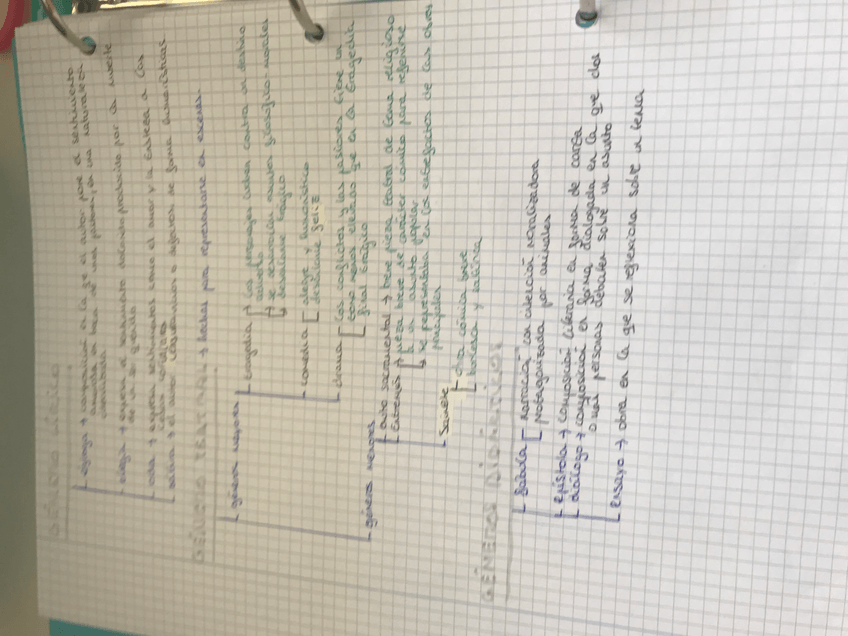 GÉNERO LÍRICO
égloga → composición en la que el autor pone el sentimiento
amoroso en boca de unos pastores, en una naturaleza
idealizada.
elegía → expresa el sentimiento doloroso producido por la muerte
de un ser querido
oda → expresa sentimientos como el amor y la tristeza a las
sátira → el autor o de forma
GÉNERO TEATRAL → hechas para representarse en escenas.
géneros mayores
tragedia → los personajes luchan contra un destino
adverso
→ se desarrollan asuntos filosófico-morales
desenlace trágico
comedia alegre y humorístico
desenlace feliz
drama los conflictos y las pasiones tiene un
tono menos elevado que en la tragedia
final trágico
géneros menores
auto sacramental → breve pieza teatral de tema religioso
Entremés → pieza breve de carácter cómico para
a un asunto popular
→ se representaba en los entreactos de las obras
principales
Sainete obra cómica breve
burlesca y satírica
GÉNEROS DIDÁCTICOS
fábula narración con intención moralizadora
Protagonizada por animales
epístola → composición literaria en forma de carta
diálogo → composición en forma dialogada en la que dos
o más personas debaten sobre un asunto
ensayo → obra en la que se reflexiona sobre un tema